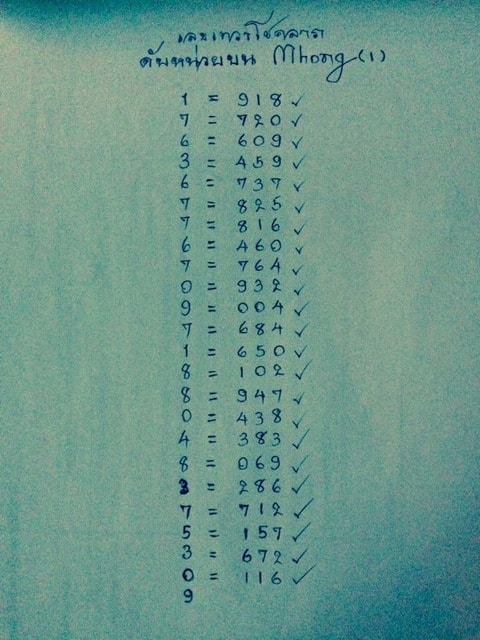 เลขเทวาโชคลาภ
ดับหน่วยบน Mhong (1)
1 = 918 ✓
7 = 720 ✓
6 = 609 ✓
3 = 459 ✓
6 = 737 ✓
7 = 825 ✓
7 = 816 ✓
6 = 460 ✓
7 = 764 ✓
0 = 932 ✓
9 = 004 ✓
7 = 684 ✓
1 = 650 ✓
8 = 102 ✓
8 = 947 ✓
0 = 438 ✓
4 = 383 ✓
8 = 069 ✓
3 = 286 ✓
7 = 712 ✓
5 = 157 ✓
3 = 672 ✓
0 = 116 ✓
9